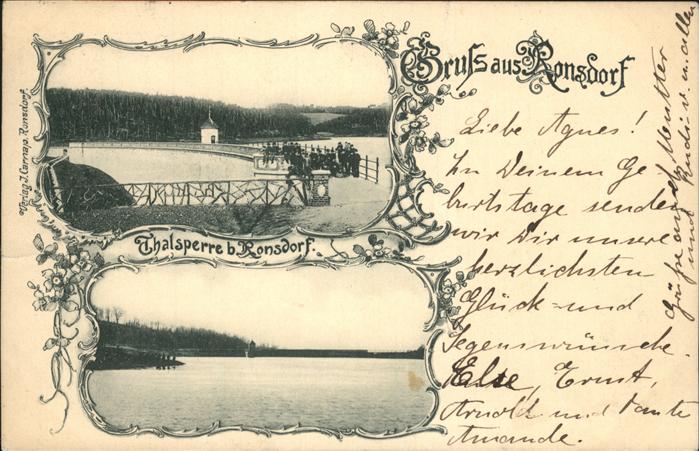 Gruss aus Ronsdorf
Verlag J. Carnap, Ronsdorf.
Thalsperre b. Ronsdorf.
Liebe Agnes!
Zu Deinem Ge
burtstage senden
wir Dir unsere
herzlichsten
Glück- und
Segenswünsche.
Else, Ernst,
Arnold und Tante
Amande.
Grüße an Mutter
und v. allen